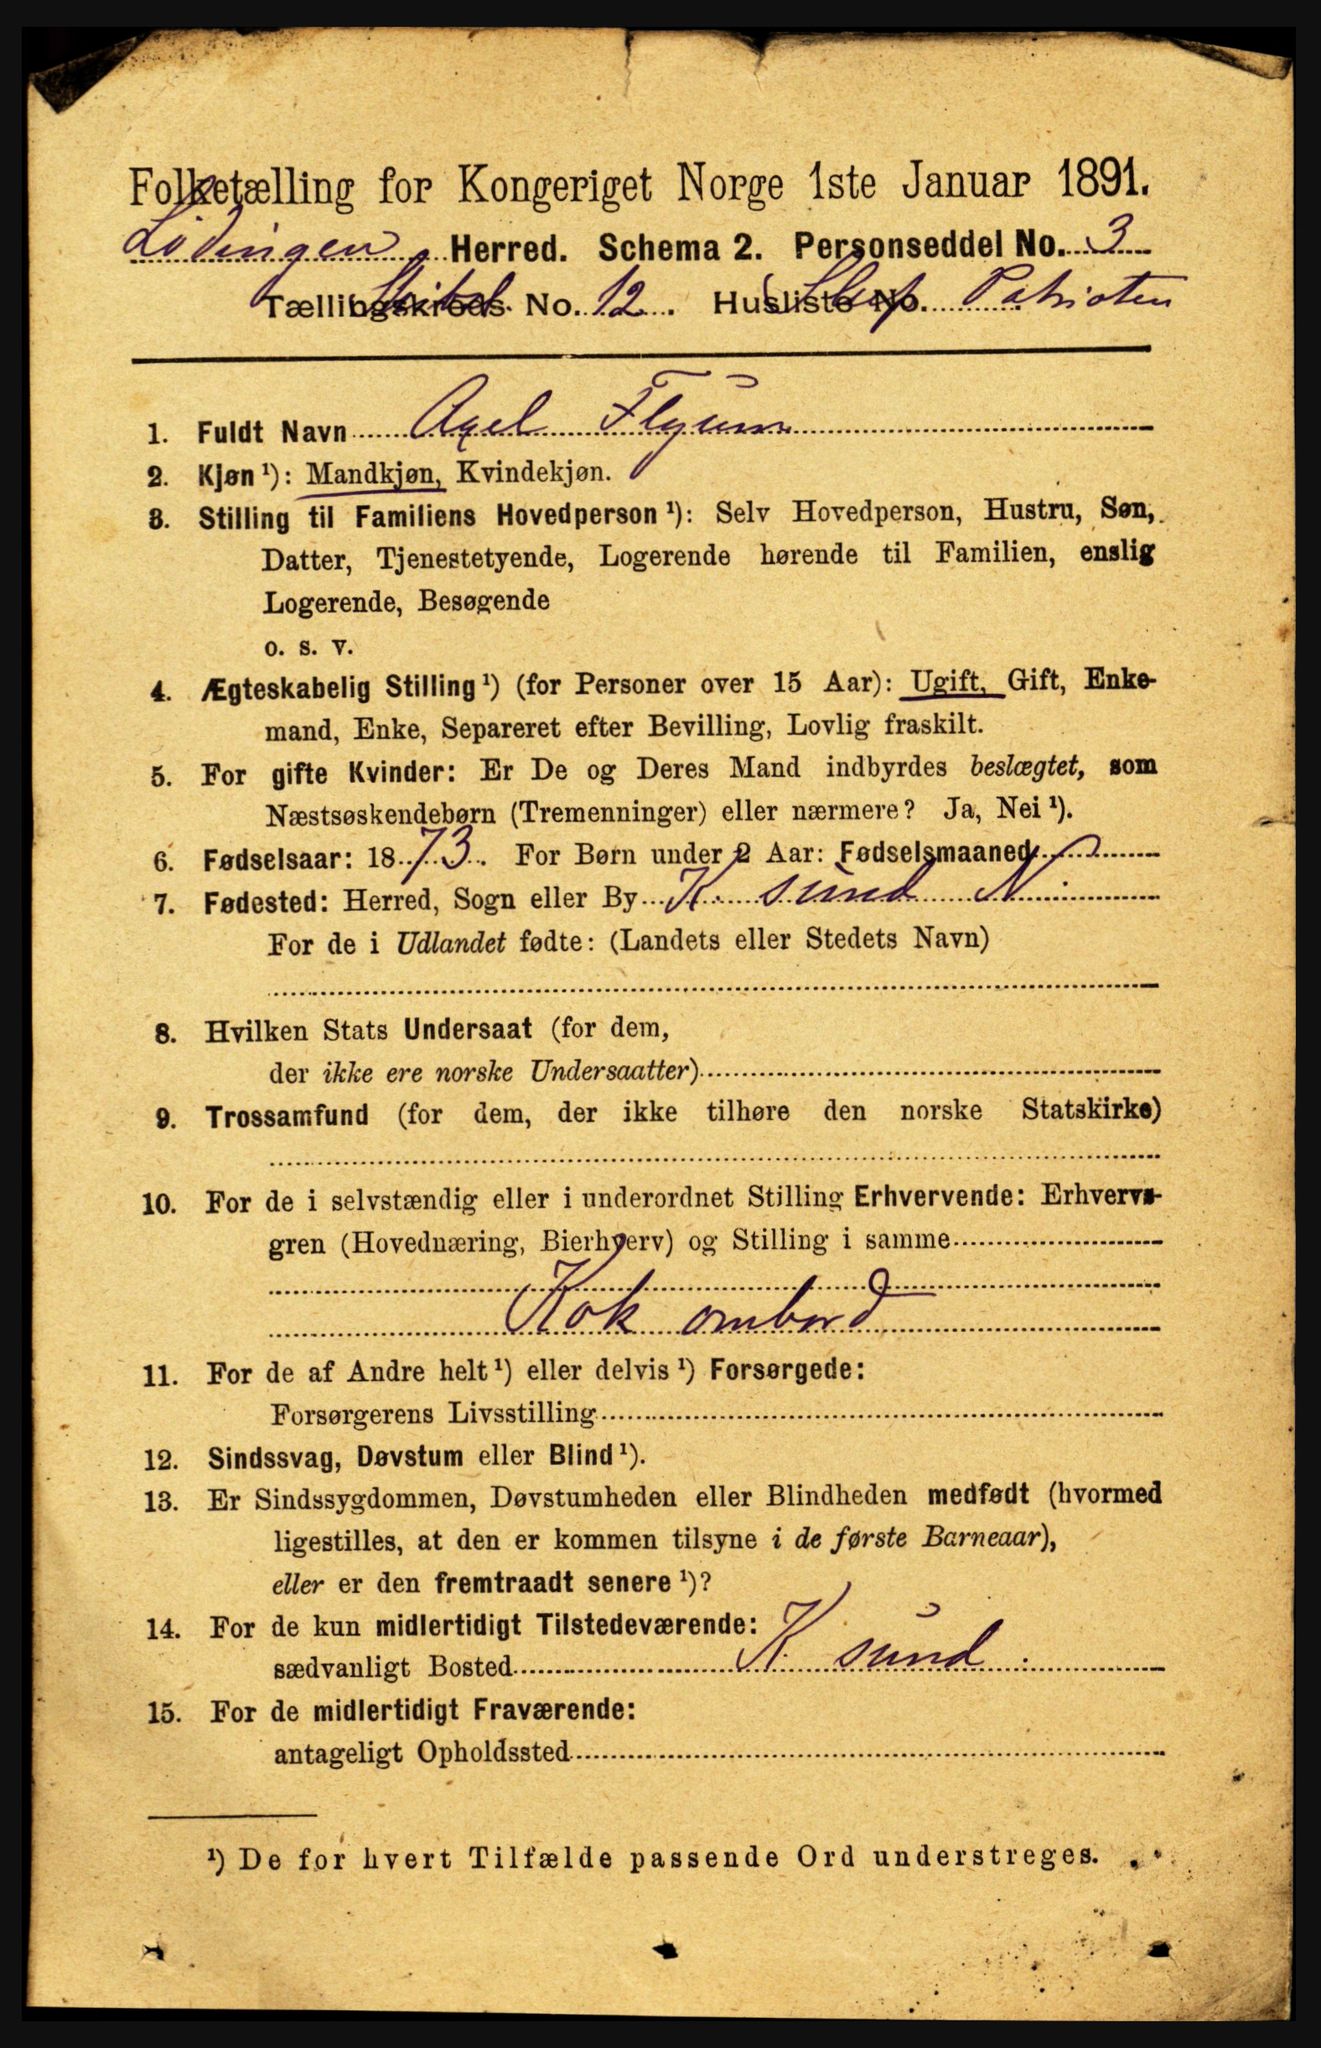 Folketælling for Kongeriget Norge 1ste Januar 1891.
Lødingen Herred. Schema 2. Personseddel No. 3
Tællingskreds No. 12. Husliste No. Slup Patrioten
1. Fuldt Navn Axel Flygum
2. Kjøn¹): Mandkjøn, Kvindekjøn.
3. Stilling til Familiens Hovedperson¹): Selv Hovedperson, Hustru, Søn,
Datter, Tjenestetyende, Logerende hørende til Familien, enslig
Logerende, Besøgende
o. s. v.
4. Ægteskabelig Stilling¹) (for Personer over 15 Aar): Ugift, Gift, Enke-
mand, Enke, Separeret efter Bevilling, Lovlig fraskilt.
5. For gifte Kvinder: Er De og Deres Mand indbyrdes beslægtet, som
Næstsøskendebørn (Tremenninger) eller nærmere? Ja, Nei¹).
6. Fødselsaar: 1873. For Børn under 2 Aar: Fødselsmaaned
7. Fødested: Herred, Sogn eller By K. sund N.
For de i Udlandet fødte: (Landets eller Stedets Navn)
8. Hvilken Stats Undersaat (for dem,
der ikke ere norske Undersaatter)
9. Trossamfund (for dem, der ikke tilhøre den norske Statskirke)
10. For de i selvstændig eller i underordnet Stilling Erhvervende: Erhvervs-
gren (Hovednæring, Bierhverv) og Stilling i samme
Kok ombord
11. For de af Andre helt¹) eller delvis¹) Forsørgede:
Forsørgerens Livsstilling
12. Sindssvag, Døvstum eller Blind¹).
13. Er Sindssygdommen, Døvstumheden eller Blindheden medfødt (hvormed
ligestilles, at den er kommen tilsyne i de første Barneaar),
eller er den fremtraadt senere¹)?
14. For de kun midlertidigt Tilstedeværende:
sædvanligt Bosted K. sund.
15. For de midlertidigt Fraværende:
antageligt Opholdssted
¹) De for hvert Tilfælde passende Ord understreges.